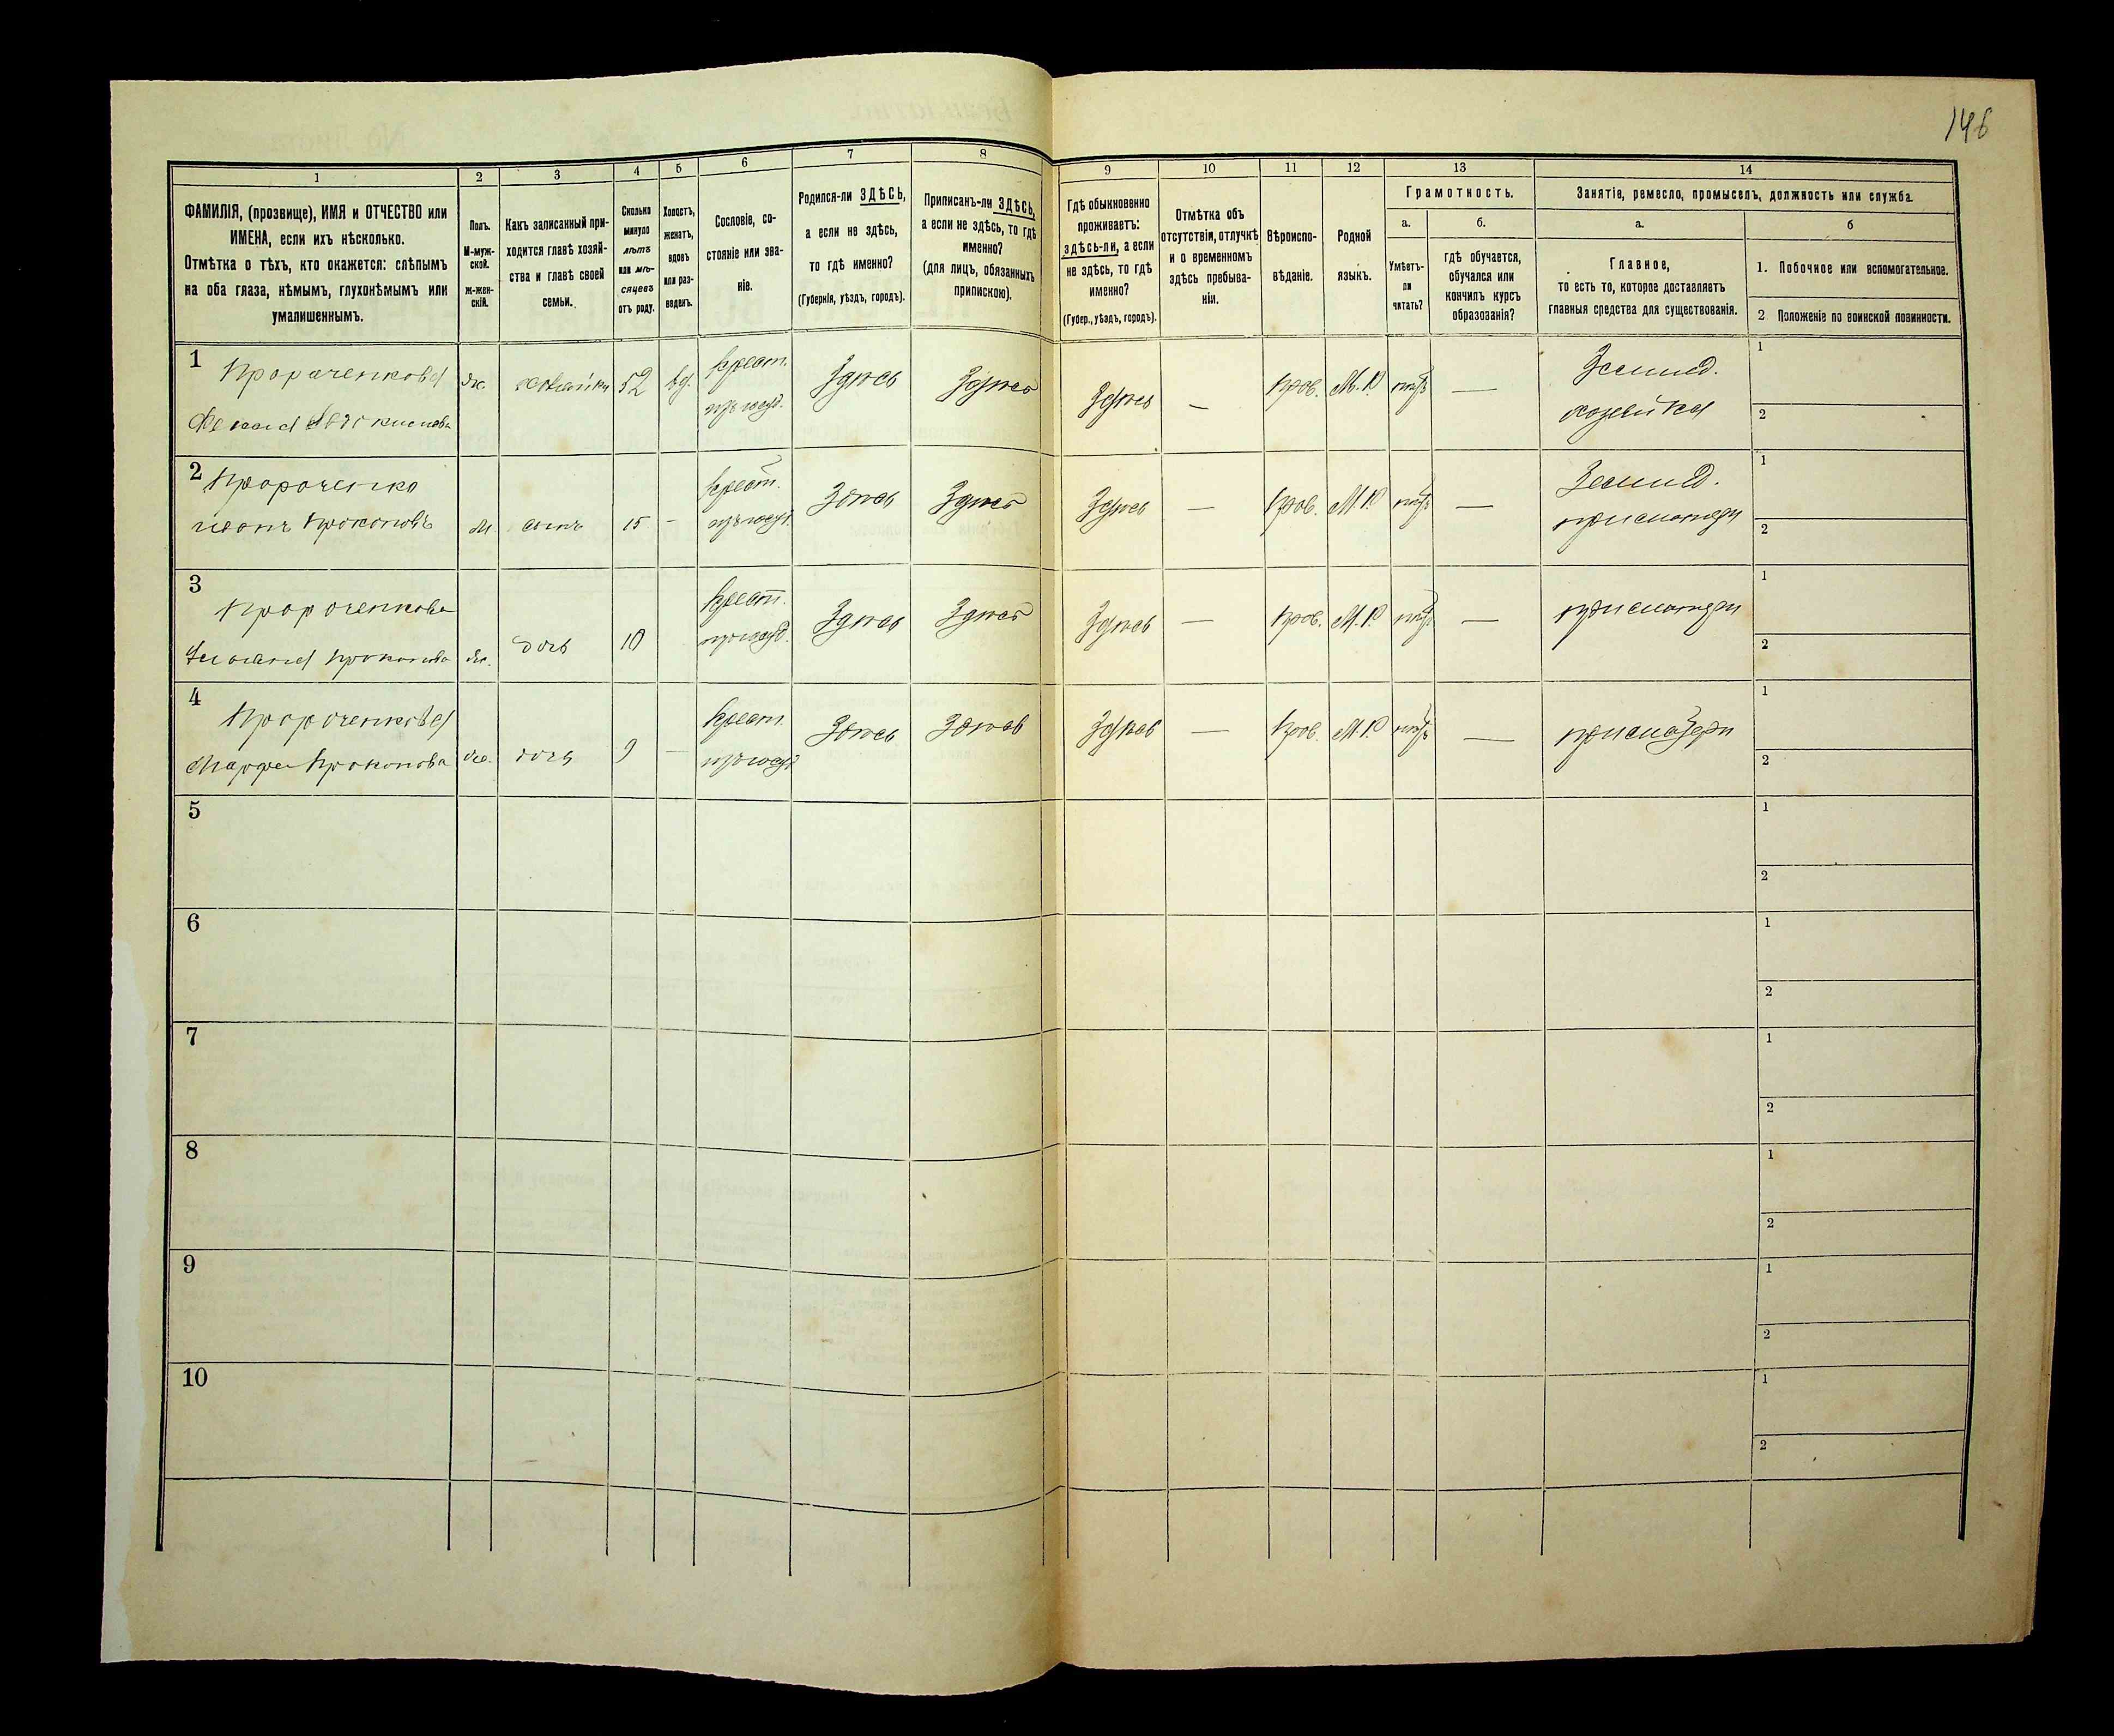 146
1 2 3 4 5 6 7 8 9 10 11 12 13 14
ФАМИЛІЯ, (прозвище), ИМЯ и ОТЧЕСТВО или
ИМЕНА, если ихъ нѣсколько.
Отмѣтка о тѣхъ, кто окажется: слѣпымъ
на оба глаза, нѣмымъ, глухонѣмымъ или
умалишеннымъ.
Полъ.
М-муж-
ской.
Ж-жен-
скій.
Какъ записанный при-
ходится главѣ хозяй-
ства и главѣ своей
семьи.
Сколько
минуло
лѣтъ
или мѣ-
сяцевъ
отъ роду.
Холостъ,
женатъ,
вдовъ
или раз-
веденъ.
Сословіе, со-
стояніе или зва-
ніе.
Родился-ли ЗДѢСЬ,
а если не здѣсь,
то гдѣ именно?
(Губернія, уѣздъ, городъ).
Приписанъ-ли ЗДѢСЬ,
а если не здѣсь, то гдѣ
именно?
(для лицъ, обязанныхъ
припискою).
Гдѣ обыкновенно
проживаетъ:
здѣсь-ли, а если
не здѣсь, то гдѣ
именно?
(Губер., уѣздъ, городъ).
Отмѣтка объ
отсутствіи, отлучкѣ
и о временномъ
здѣсь пребыва-
ніи.
Вѣроиспо-
вѣданіе.
Родной
языкъ.
Грамотность.
а.
Умѣетъ-
ли
читать?
б.
гдѣ обучается,
обучался или
кончилъ курсъ
образованія?
Занятіе, ремесло, промыселъ, должность или служба.
а.
Главное,
то есть то, которое доставляетъ
главныя средства для существованія.
б
1. Побочное или вспомогательное.
2 Положеніе по воинской повинности.
1
Пророченкова
ж. хозяйка 52 вд.
крест.
Здѣсь Здѣсь Здѣсь — Прав. М.Р. нѣтъ —
Землед.
хозяйка
1
2
2
Пророченко
Иванъ Прокоповъ
м. сынъ 15 —
крест.
Здѣсь Здѣсь Здѣсь — Прав. М.Р. нѣтъ —
Землед.
при матери
1
2
3
Пророченкова
Прокопова
ж. дочь 10
крест.
Здѣсь Здѣсь Здѣсь — Прав. М.Р. нѣтъ —
при матери
1
2
4
Пророченкова
Марфа Прокопова
ж. дочь 9 —
крест.
Здѣсь Здѣсь Здѣсь — Прав. М.Р. нѣтъ —
при матери
1
2
5
1
2
6
1
2
7
1
2
8
1
2
9
1
2
10
1
2